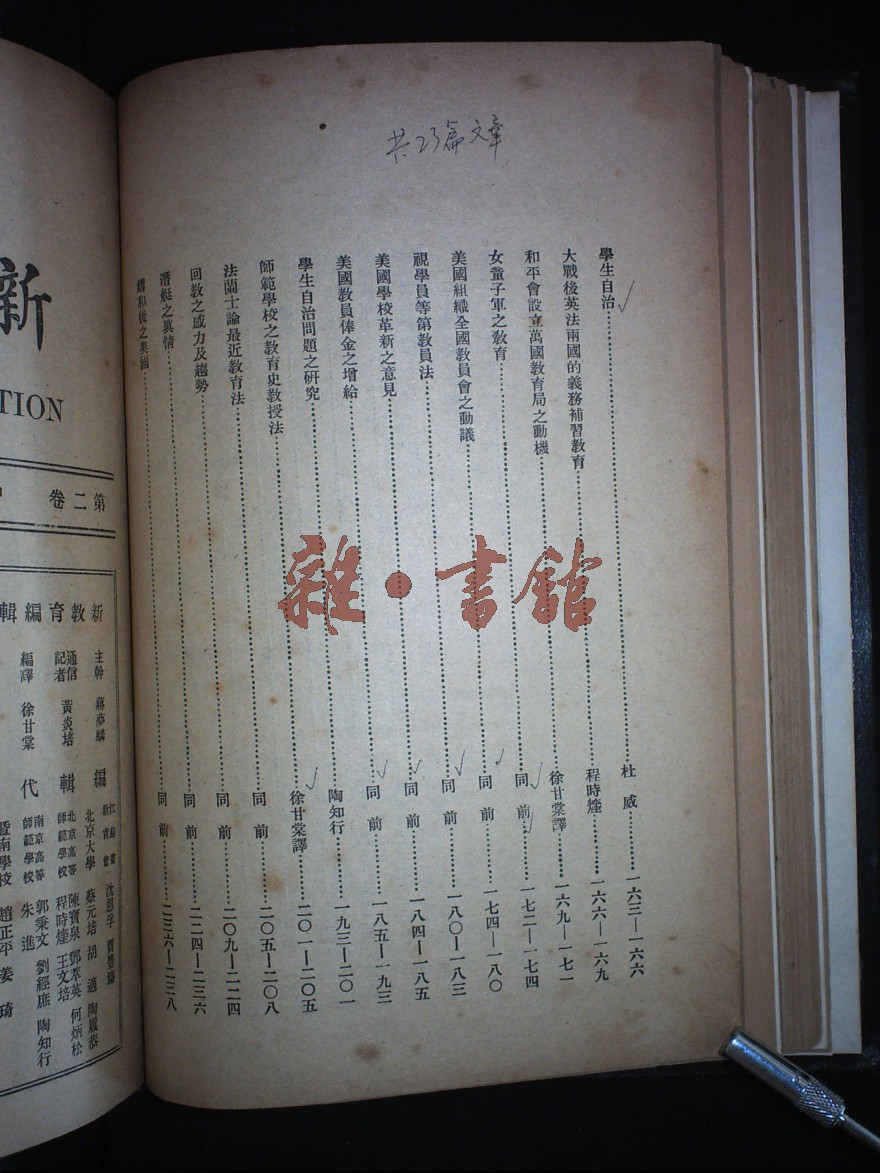 共23篇文章
學生自治……杜威……一六三—一六六
大戰後英法兩國的義務補習教育……程時煃……一六六—一六九
和平會設立萬國教育局之動機……徐甘棠譯……一六九—一七一
女童子軍之教育……同前……一七二—一七四
美國組織全國教員會之動議……同前……一七四—一八〇
視學員等第教員法……同前……一八〇—一八三
美國學校革新之意見……同前……一八四—一八五
美國教員俸金之增給……同前……一八五—一九三
學生自治問題之研究……陶知行……一九三—二〇一
師範學校之教育史教授法……徐甘棠譯……二〇一—二〇五
法蘭士論最近教育法……同前……二〇五—二〇八
回教之感力及趨勢……同前……二〇九—二二四
潛艇之眞情……同前……二二四—二三六
媾和後之奧國……同前……二三六—二三八
雜·書館
新
TION
第二卷
新教育編輯
主幹 蔣夢麟
通信記者 黃炎培
編譯 徐甘棠
編輯代
江蘇省教育會 沈恩孚 賈豐臻
北京大學 蔡元培 胡適 陶履恭
北京高等師範學校 陳寶泉 鄧萃英 何炳松
程時煃 王文培
南京高等師範學校 郭秉文 劉經庶 陶知行
朱進
暨南學校 趙正平 姜琦